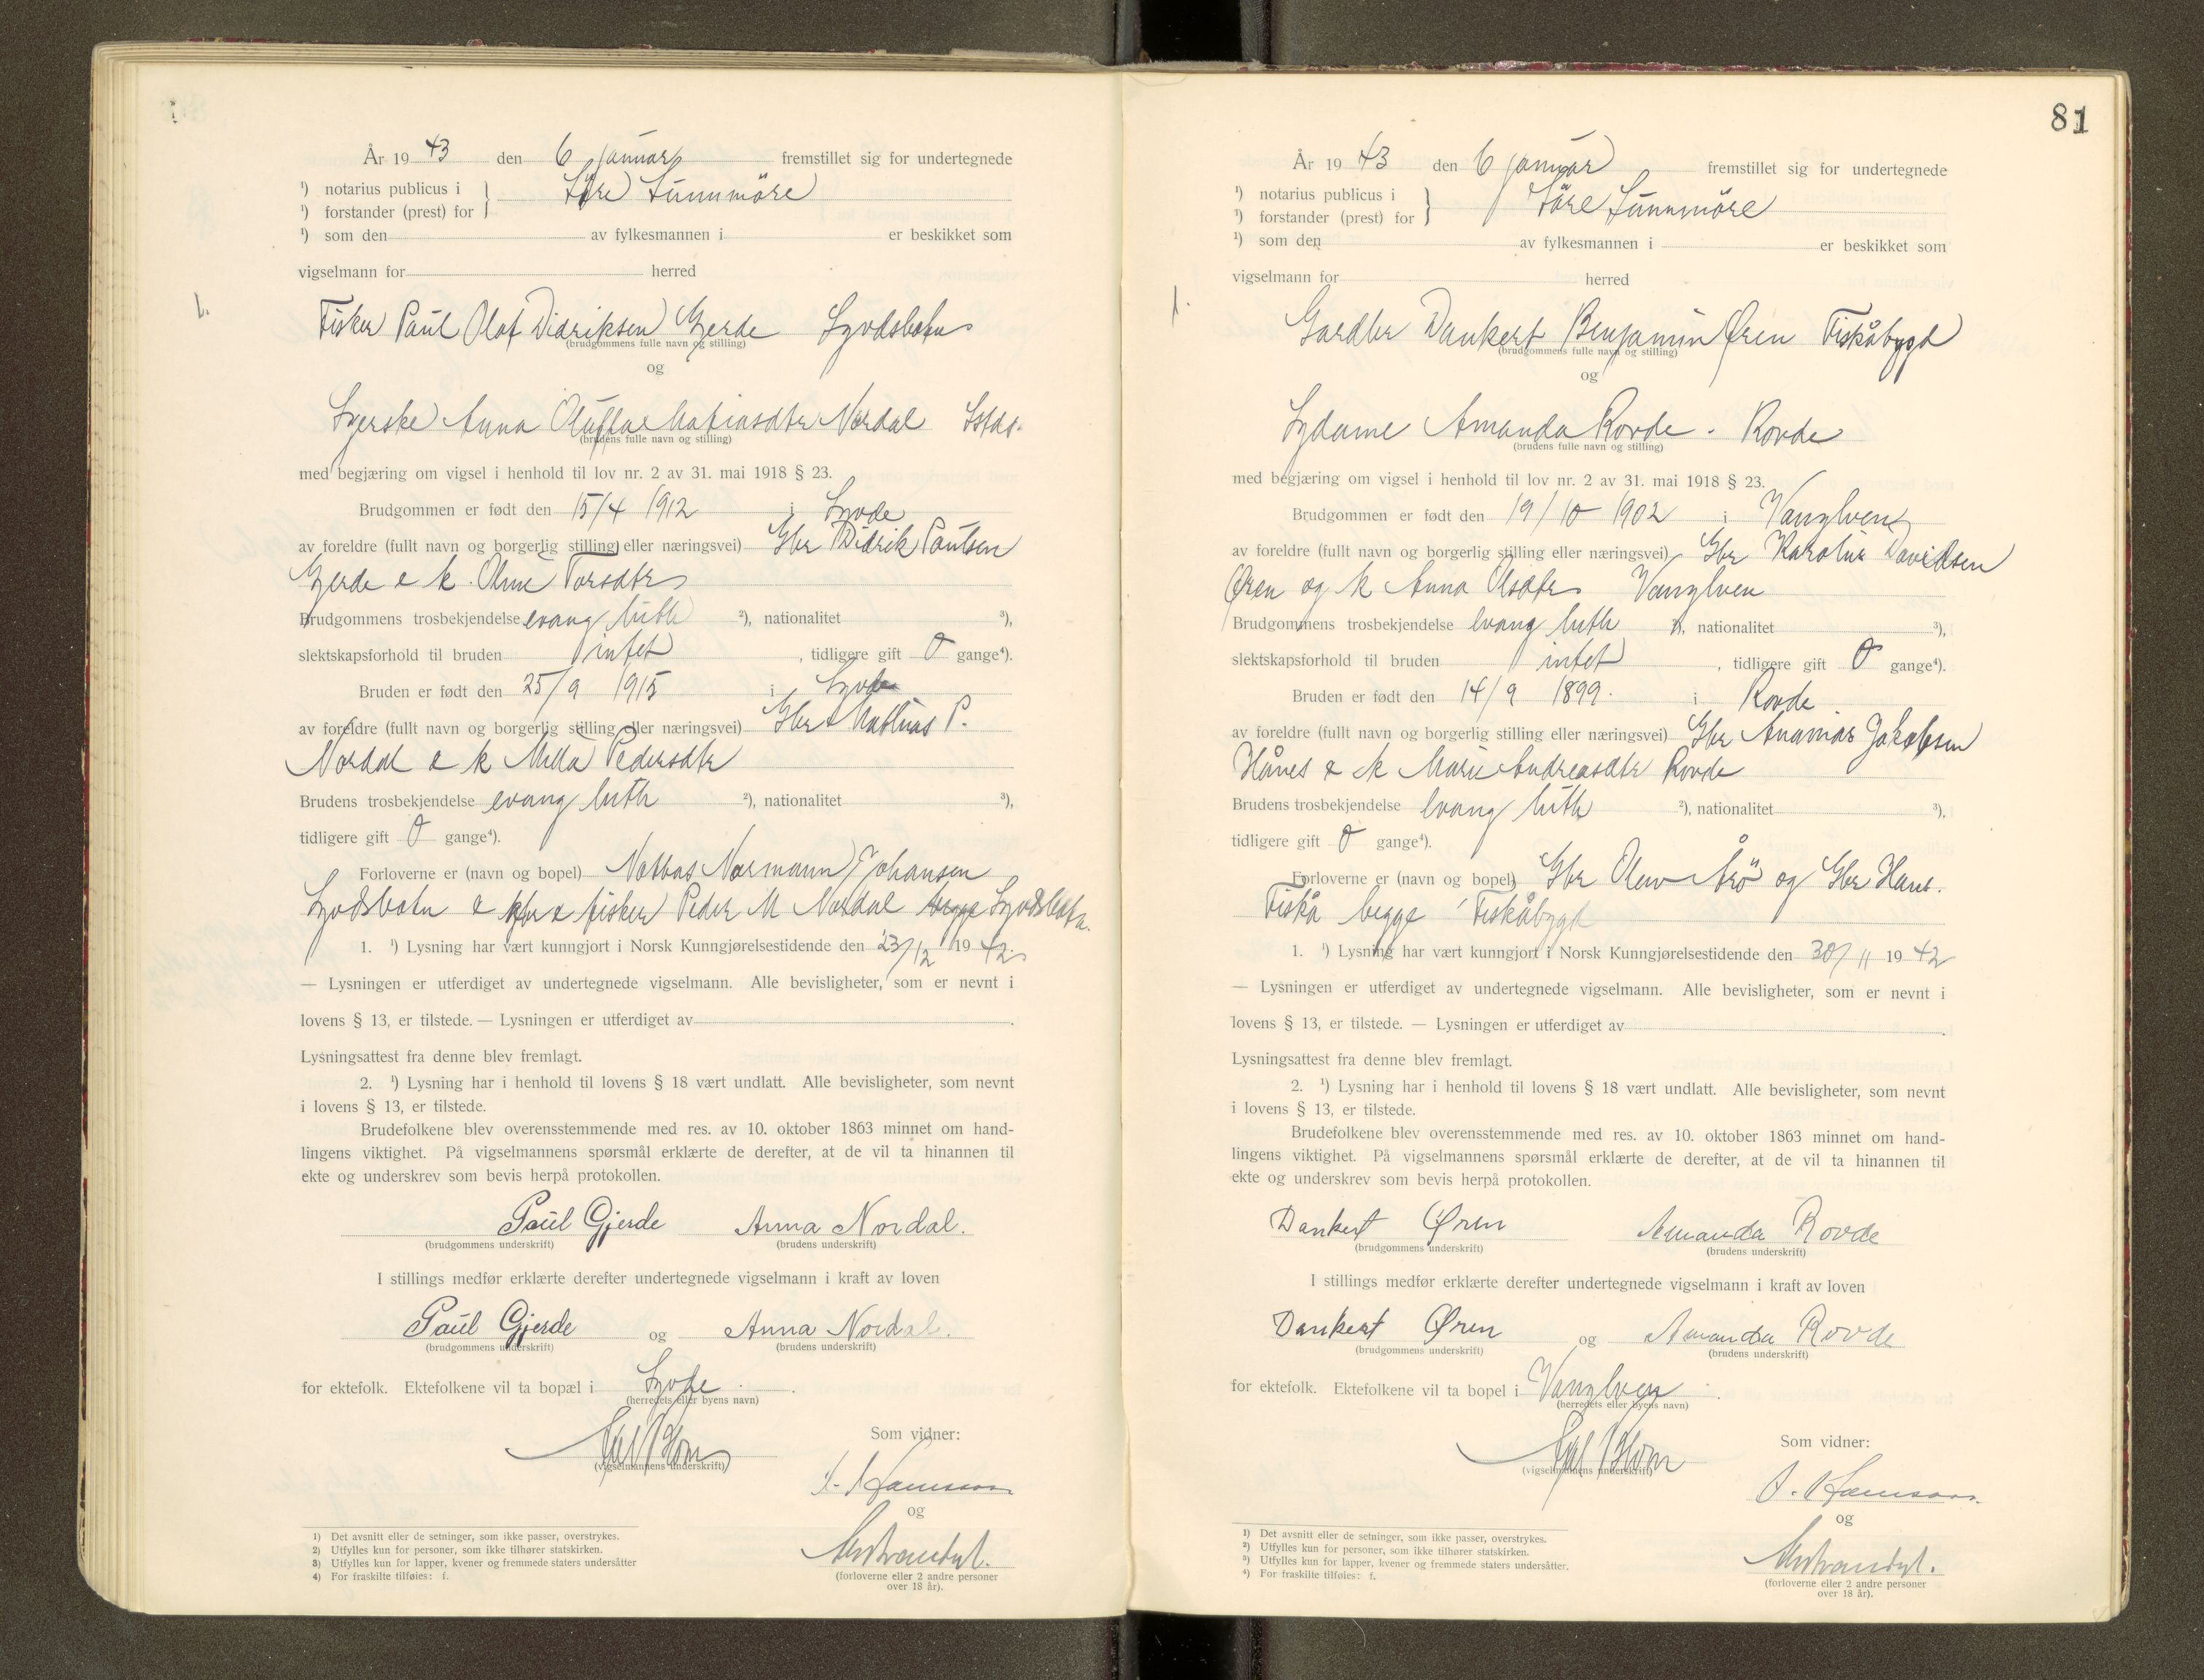 År 19 43 den 6 januar fremstillet sig for undertegnede
¹) notarius publicus i
¹) forstander (prest) for } Söre Sunnmöre
¹) som den av fylkesmannen i er beskikket som
vigselmann for herred
1.
Fisker Paul Olaf Didriksen Gjerde Syvdsbotn
(brudgommens fulle navn og stilling)
og
Syerske Anna Mathiasdtr Nordal Sstds.
(brudens fulle navn og stilling)
med begjæring om vigsel i henhold til lov nr. 2 av 31. mai 1918 § 23.
Brudgommen er født den 15/4 1912 i Syvde
av foreldre (fullt navn og borgerlig stilling eller næringsvei) Gbr Didrik Paulsen
Gjerde & k. Torsdtr
Brudgommens trosbekjendelse evang luth ²), nationalitet ³),
slektskapsforhold til bruden intet , tidligere gift 0 gange⁴).
Bruden er født den 25/9 1915 i Syvde
av foreldre (fullt navn og borgerlig stilling eller næringsvei) Gbr Mathias P.
Nordal & k Pedersdtr
Brudens trosbekjendelse evang luth ²), nationalitet ³),
tidligere gift 0 gange⁴).
Forloverne er (navn og bopel) Normann Johansen
Syvdsbotn & fisker Peder M Nordal begge Syvdsbotn.
1. ¹) Lysning har vært kunngjort i Norsk Kunngjørelsestidende den 23/12 19 42
— Lysningen er utferdiget av undertegnede vigselmann. Alle bevisligheter, som er nevnt i
lovens § 13, er tilstede. — Lysningen er utferdiget av .
Lysningsattest fra denne blev fremlagt.
2. ¹) Lysning har i henhold til lovens § 18 vært undlatt. Alle bevisligheter, som nevnt
i lovens § 13, er tilstede.
Brudefolkene blev overensstemmende med res. av 10. oktober 1863 minnet om hand-
lingens viktighet. På vigselmannens spørsmål erklærte de derefter, at de vil ta hinannen til
ekte og underskrev som bevis herpå protokollen.
Paul Gjerde Anna Nordal.
(brudgommens underskrift) (brudens underskrift)
I stillings medfør erklærte derefter undertegnede vigselmann i kraft av loven
Paul Gjerde og Anna Nordal.
(brudgommens underskrift) (brudens underskrift)
for ektefolk. Ektefolkene vil ta bopæl i Syvde .
(herredets eller byens navn)
Som vidner:
(vigselmannens underskrift)
og
(forloverne eller 2 andre personer
over 18 år).
1) Det avsnitt eller de setninger, som ikke passer, overstrykes.
2) Utfylles kun for personer, som ikke tilhører statskirken.
3) Utfylles kun for lapper, kvener og fremmede staters undersåtter
4) For fraskilte tilføies: f.
81
År 19 43 den 6 januar fremstillet sig for undertegnede
¹) notarius publicus i
¹) forstander (prest) for } Söre Sunnmöre
¹) som den av fylkesmannen i er beskikket som
vigselmann for herred
1.
Gardbr Dankert Benjamin Øren Fiskåbygd
(brudgommens fulle navn og stilling)
og
Sydame Amanda Rovde. Rovde
(brudens fulle navn og stilling)
med begjæring om vigsel i henhold til lov nr. 2 av 31. mai 1918 § 23.
Brudgommen er født den 19/10 1902 i Vanylven
av foreldre (fullt navn og borgerlig stilling eller næringsvei) Gbr Karolus Davidsen
Øren og k Anna Olsdtr Vanylven
Brudgommens trosbekjendelse evang luth ²), nationalitet ³),
slektskapsforhold til bruden intet , tidligere gift 0 gange⁴).
Bruden er født den 14/9 1899. i Rovde
av foreldre (fullt navn og borgerlig stilling eller næringsvei) Gbr Ananias Jakobsen
Hånes & k Marie Andreasdtr Rovde
Brudens trosbekjendelse evang luth ²), nationalitet ³),
tidligere gift 0 gange⁴).
Forloverne er (navn og bopel) Gbr og Gbr Hans.
Fiskå begge Fiskåbygd
1. ¹) Lysning har vært kunngjort i Norsk Kunngjørelsestidende den 30/11 19 42
— Lysningen er utferdiget av undertegnede vigselmann. Alle bevisligheter, som er nevnt i
lovens § 13, er tilstede. — Lysningen er utferdiget av .
Lysningsattest fra denne blev fremlagt.
2. ¹) Lysning har i henhold til lovens § 18 vært undlatt. Alle bevisligheter, som nevnt
i lovens § 13, er tilstede.
Brudefolkene blev overensstemmende med res. av 10. oktober 1863 minnet om hand-
lingens viktighet. På vigselmannens spørsmål erklærte de derefter, at de vil ta hinannen til
ekte og underskrev som bevis herpå protokollen.
Dankert Øren Amanda Rovde
(brudgommens underskrift) (brudens underskrift)
I stillings medfør erklærte derefter undertegnede vigselmann i kraft av loven
Dankert Øren og Amanda Rovde
(brudgommens underskrift) (brudens underskrift)
for ektefolk. Ektefolkene vil ta bopel i Vanylven .
(herredets eller byens navn)
Som vidner:
(vigselmannens underskrift)
og
(forloverne eller 2 andre personer
over 18 år).
¹) Det avsnitt eller de setninger, som ikke passer, overstrykes.
²) Utfylles kun for personer, som ikke tilhører statskirken.
³) Utfylles kun for lapper, kvener og fremmede staters undersåtter.
⁴) For fraskilte tilføies: f.